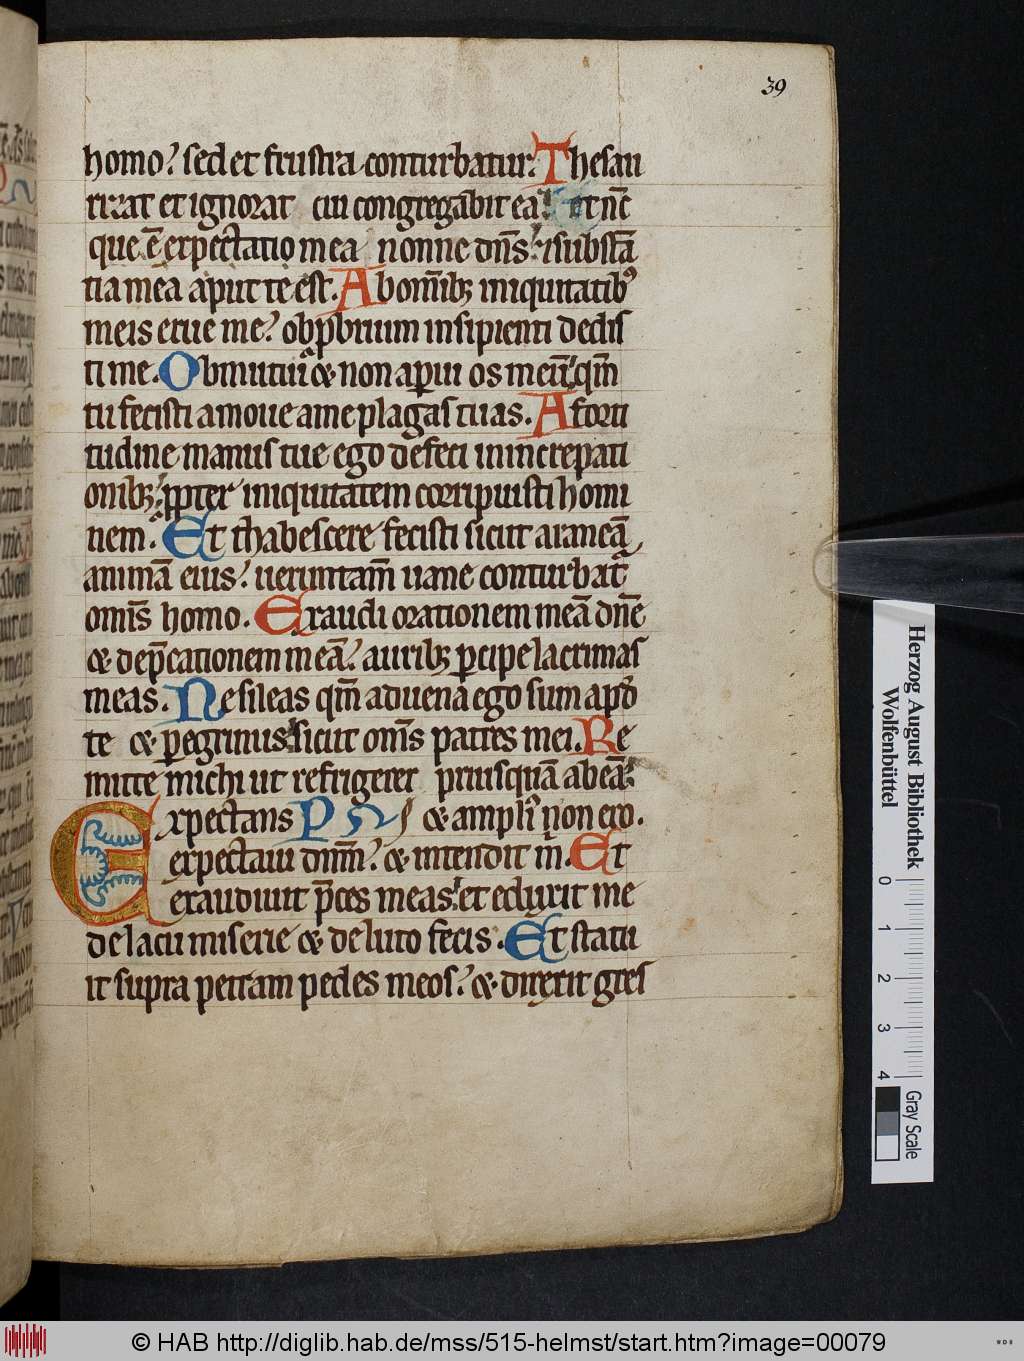 39
homo? sed et frustra conturbatur. Thesau
rizat et ignorat cui congregabit ea. et nc̄
que ē expectatio mea nonne dn̄s. ⁊ substā
tia mea aput te est. Ab om̄ibꝫ iniquitatibꝰ
meis erue me? obprbrium insipienti dedis
ti me. Obmutui & non aperui os meū qm̄
tu fecisti amoue a me plagas tuas. A forti
tudine manus tue ego defeci in increpati
onibꝫ ꝓpter iniquitatem corripuisti homi
nem. Et thabescere fecisti sicut araneā
animā eius? ueruntam̄ uane conturbat᷑
om̄is homo. Exaudi orationem meā dn̄e
& dep̄cationem meā? auribꝫ ꝑcipe lacrimas
meas. Ne sileas qm̄ aduena ego sum apd̄
te & ꝑegrinus sicut om̄s patres mei. Re
mitte michi ut refrigerer priusquā abeā
Expectans P & ampliꝰ non ero.
expectaui dn̄m? & intendit m̄. Et
exaudiuit p̄ces meas et eduxit me
de lacu miserie & de luto fecis. Et statu
it supra petram pedes meos? & direxit gres
Herzog August Bibliothek
Wolfenbüttel
0 1 2 3 4
Gray Scale
© HAB http://diglib.hab.de/mss/515-helmst/start.htm?image=00079